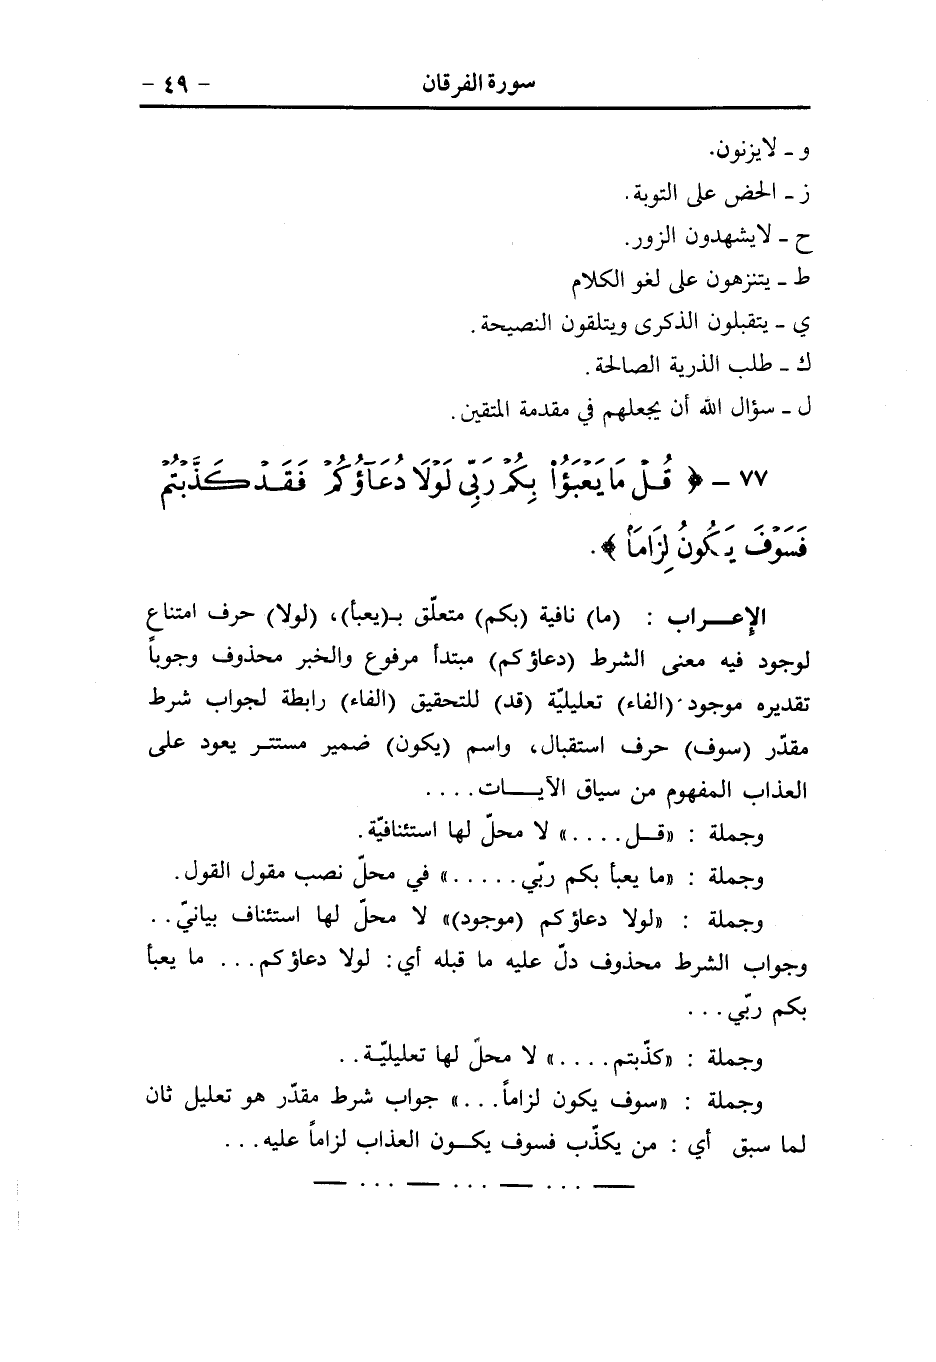 سورة الفرقان - ٤٩ -
و - لايزنون.
ز - الحض على التوبة.
ح - لايشهدون الزور.
ط - يتنزهون على لغو الكلام
ي - يتقبلون الذكرى ويتلقون النصيحة.
ك - طلب الذرية الصالحة.
ل - سؤال الله أن يجعلهم في مقدمة المتقين.
٧٧ - ﴿ قُلْ مَا يَعْبَؤُا بِكُمْ رَبِّي لَوْلَا دُعَآؤُكُمْ فَقَدْ كَذَّبْتُمْ
فَسَوْفَ يَكُونُ لِزَامًا ﴾.
الإعـــراب : (ما) نافية (بكم) متعلّق بـ(يعبأ)، (لولا) حرف امتناع
لوجود فيه معنى الشرط (دعاؤكم) مبتدأ مرفوع والخبر محذوف وجوباً
تقديره موجود (الفاء) تعليليّة (قد) للتحقيق (الفاء) رابطة لجواب شرط
مقدّر (سوف) حرف استقبال، واسم (يكون) ضمير مستتر يعود على
العذاب المفهوم من سياق الآيـــات....
وجملة : «قـل....» لا محلّ لها استئنافيّة.
وجملة : «ما يعبأ بكم ربّي.....» في محلّ نصب مقول القول.
وجملة : «لولا دعاؤكم (موجود)» لا محلّ لها استئناف بيانيّ..
وجواب الشرط محذوف دلّ عليه ما قبله أي: لولا دعاؤكم... ما يعبأ
بكم ربّي...
وجملة : «كذّبتم....» لا محلّ لها تعليليّـة..
وجملة : «سوف يكون لزاماً...» جواب شرط مقدّر هو تعليل ثان
لما سبق أي : من يكذّب فسوف يكـون العذاب لزاماً عليه...
— ... — ... — ... —